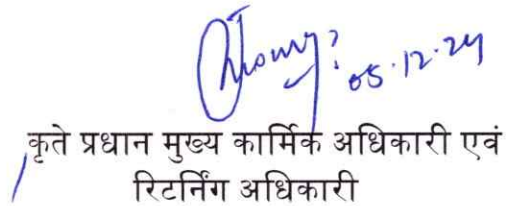 05.12.24
कृते प्रधान मुख्य कार्मिक अधिकारी एवं
रिटर्निंग अधिकारी